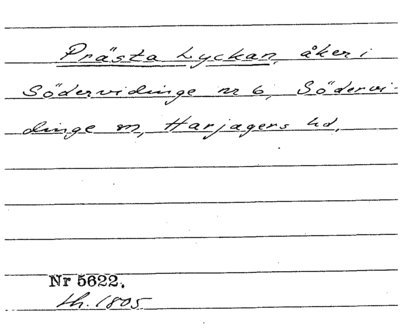 Prästa Lyckan, åker i
Södervidinge nr 6, Södervi-
dinge sn, Harjagers hd.
Nr 5622.
th. 1805